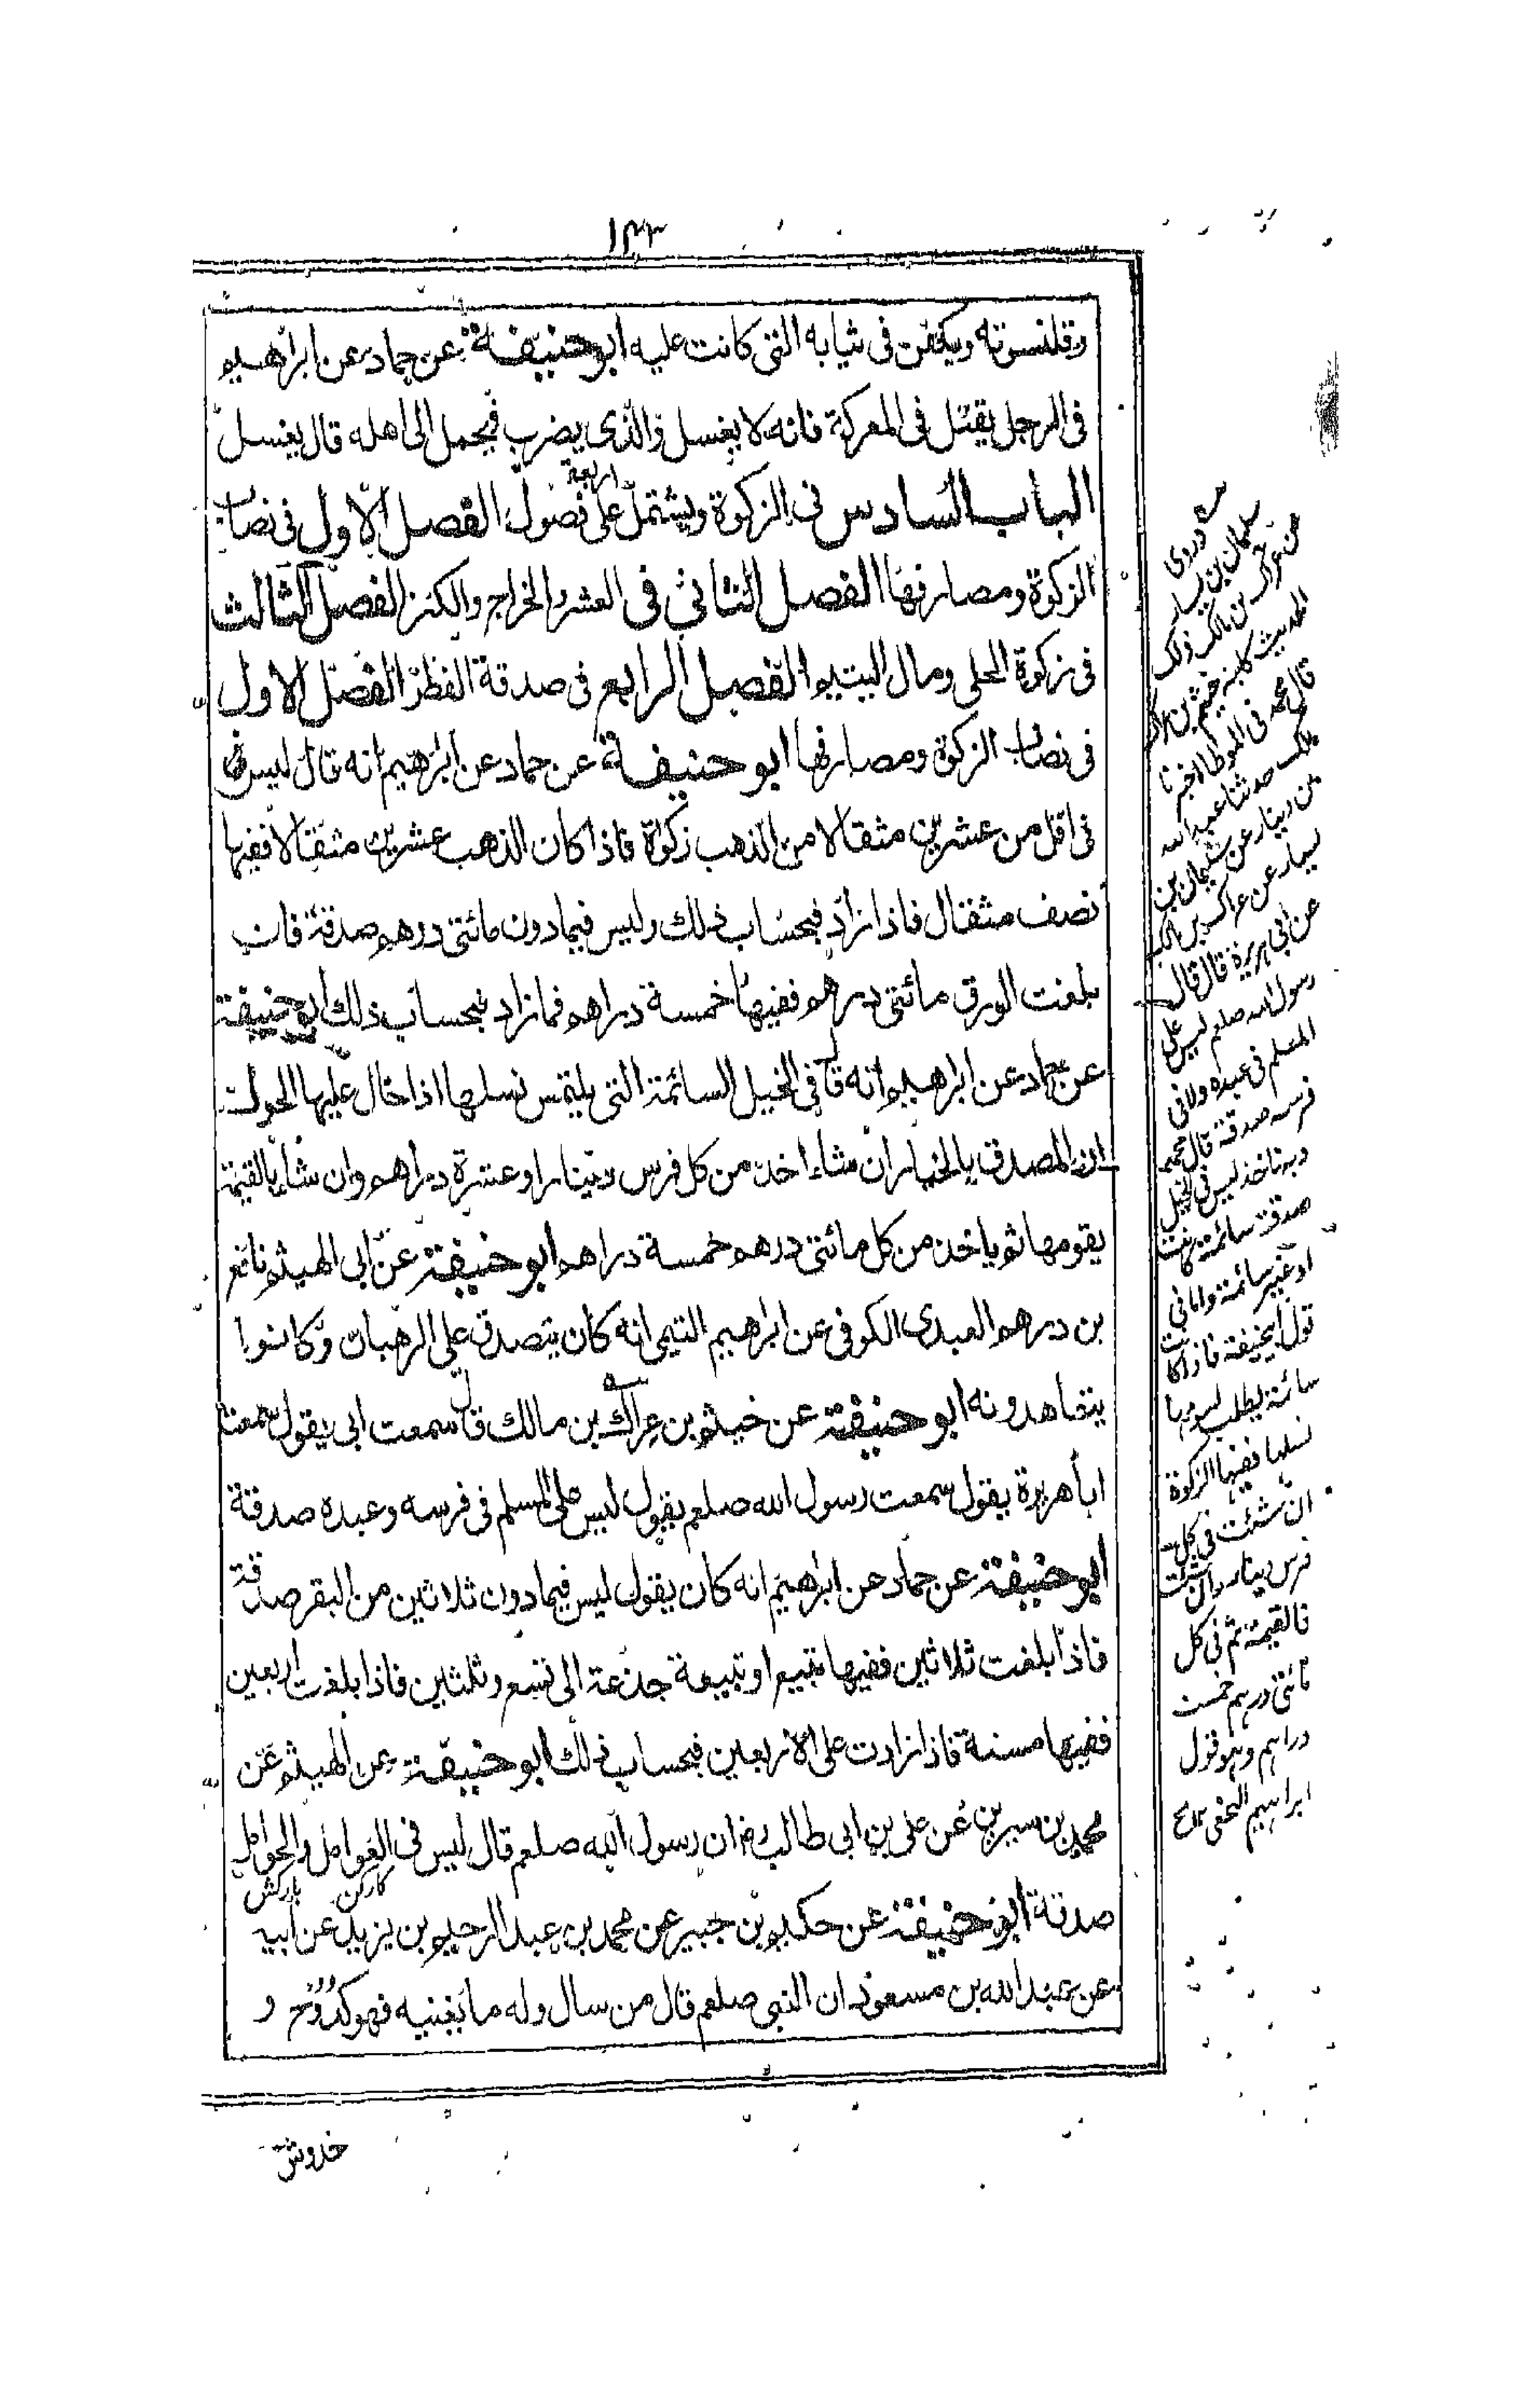 ١٣٣
وقلنسوته ويكفن فى ثيابه التى كانت عليه ابوحنيفة عن حماد عن ابراهيم
فى الرجل يقتل فى المعركة فانه لا يغسل والذى يضرب فيحمل الى اهله قال يغسل
الباب السادس فى الزكوة ويشتمل على اربعة فصول الفصل الاول فى نصاب
الزكوة ومصارفها الفصل الثانى فى العشر والخراج والكنز الفصل الثالث
فى زكوة الحلى ومال اليتيم الفصل الرابع فى صدقة الفطر الفصل الاول
فى نصاب الزكوة ومصارفها ابو حنيفة عن حماد عن ابراهيم انه قال ليس
فى اقل من عشرين مثقالا من الذهب زكوة فاذا كان الذهب عشرين مثقالا ففيها
نصف مثقال فاذا زاد فبحساب ذلك وليس فيما دون مائتى درهم صدقة فان
بلغت الورق مائتى درهم ففيها خمسة دراهم فما زاد فبحساب ذلك ابوحنيفة
عن حماد عن ابراهيم انه قال فى الخيل السائمة التى يلتمس نسلها اذا حال عليها الحول
ان المصدق بالخيار ان شاء اخذ من كل فرس دينارا وعشرة دراهم وان شاء بالقيمة
يقومها ثم ياخذ من كل مائتى درهم خمسة دراهم ابو حنيفة عن ابى الهيثم نافع
بن درهم العبدى الكوفى عن ابراهيم التيمى انه كان يتصدق على الرهبان وكانوا
يتعاهدونه ابو حنيفة عن خيثم بن عراك بن مالك قال سمعت ابى يقول سمعت
ابا هريرة يقول سمعت رسول الله صلعم يقول ليس على المسلم فى فرسه وعبده صدقة
ابو حنيفة عن حماد عن ابراهيم انه كان يقول ليس فيما دون ثلاثين من البقر صدقة
فاذا بلغت ثلاثين ففيها تبيع او تبيعة جذعة الى تسع وثلثين فاذا بلغت اربعين
ففيها مسنة فاذا زادت على الاربعين فبحساب ذلك ابو حنيفة عن الهيثم عن
محمد بن سيرين عن على بن ابى طالب رض ان رسول الله صلعم قال ليس فى العوامل والحوامل
كاركن باركش
صدقة ابو حنيفة عن حكيم بن جبير عن محمد بن عبد الرحيم بن يزيد عن ابيه
عن عبد الله بن مسعود ان النبى صلعم قال من سال وله ما يغنيه فهو كدوح و
خدوش
وروى
سليمان بن يسار
عن عراك بن مالك ذلك
الحديث كابنه خيثم بن عراك
قال محمد فى الموطا اخبرنا
مالك حدثنا عبد الله
بن دينار عن سليمان بن
يسار عن عراك بن مالك
عن ابى هريرة قال قال
رسول الله صلعم ليس على
المسلم فى عبده ولا فى
فرسه صدقة قال محمد
وبه ناخذ ليس فى الخيل
صدقة سائمة كانت
او غير سائمة واما فى
قول ابيحنيفة فاذا كانت
سائمة يطلب
نسلها ففيها الزكوة
ان شئت فى كل
فرس دينار وان شئت
فالقيمة ثم فى كل
مائتى درهم خمسة
دراهم وهو قول
ابراهيم النخعى